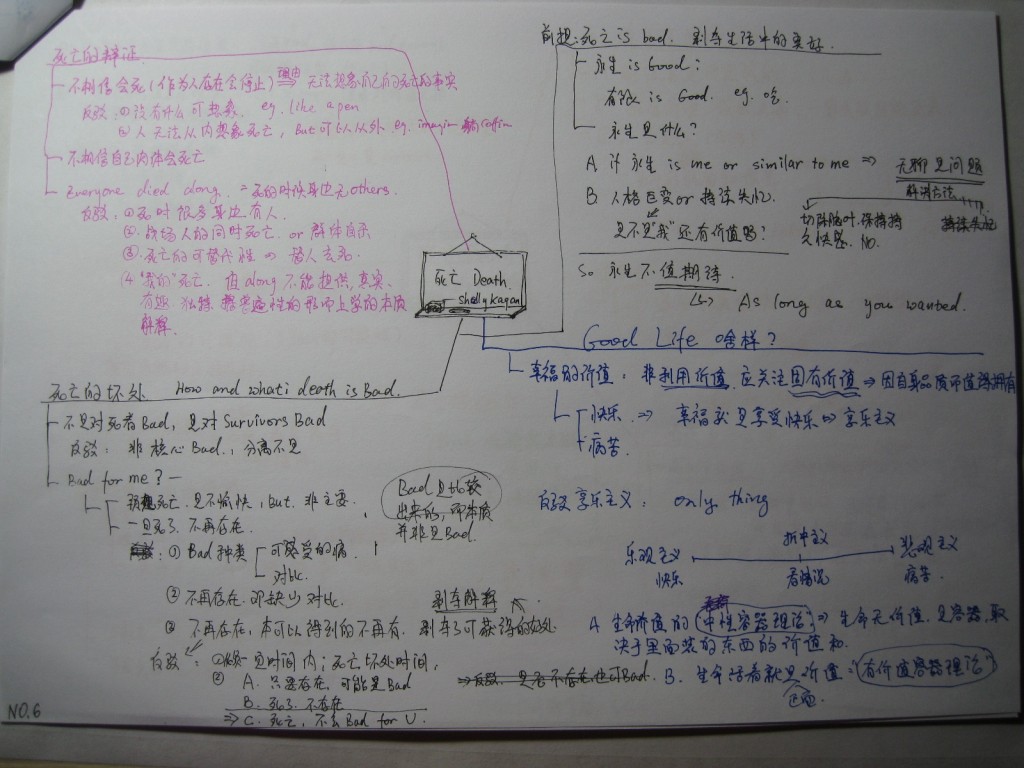 死亡的辩证
不相信会死(作为人存在会停止) 理由 无法想象自己的死亡的事实
反驳:①没有什么可想象. eg. like a pen
② 人无法从内想象死亡, But可以从外 eg. imagin coffin
不相信自己肉体会死亡
Everyone died along. = 死的时候身边无others.
反驳, ①死时很多身边有人.
②. 战场人的同时死亡. or 群体自杀
③. 死亡的可替代性 替人去死.
④ "我的"死亡. 但along不能提供, 真实、
有趣. 独特. 普遍性的形而上学的本质
解释.
死亡 Death.
shelly kagan
前提:死亡 is bad. 剥夺生活中的美好.
永生 is Good:
有限 is Good. eg. 吃.
永生是什么?
A if 永生 is me or similar to me ⇒ 无聊是问题
解决方法
B. 人格巨变 or 持续失忆.
是不是"我"还有价值吗?
切除脑叶.保持持久快感. NO.
持续失忆
So 永生不值期待.
As long as you wanted.
Good Life 啥样?
幸福的价值. 非利用价值. 应关注固有价值 ⇒ 因自身品质而值得拥有
快乐. ⇒ 幸福就是享受快乐 ⇒ 享乐主义
病苦.
反驳享乐主义: only thing
乐观主义 折中主义 悲观主义
快乐 看情况 病苦.
A 生命价值的(中性容器理论) ⇒ 生命无价值. 是容器, 取
决于里面装的东西的价值和.
B. 生命活着就是价值: "有价值容器理论"
正面.
死亡的坏处 How and whati death is Bad.
不是对死者Bad, 是对Survivors Bad
反驳: 非核心Bad., 分离不是
Bad for me? —
预想死亡. 是不愉快, but. 非主要.
一旦死了. 不再存在.
Bad是比较
出来的, 即本质
并非是Bad.
① Bad种类 可感受的痛.
对比.
② 不再存在. 即缺少对比.
剥夺解释
③ 不再存在, 本可以得到的不再有. 剥夺了可获得的好处
反驳: ①必然一定时间内; 死亡坏处时间,
② A. 只要存在. 可能是Bad
⇒反驳. 是否不存在也可Bad.
B. 死了. 不存在
⇒ C. 死亡, 不去 Bad for U.
NO.6